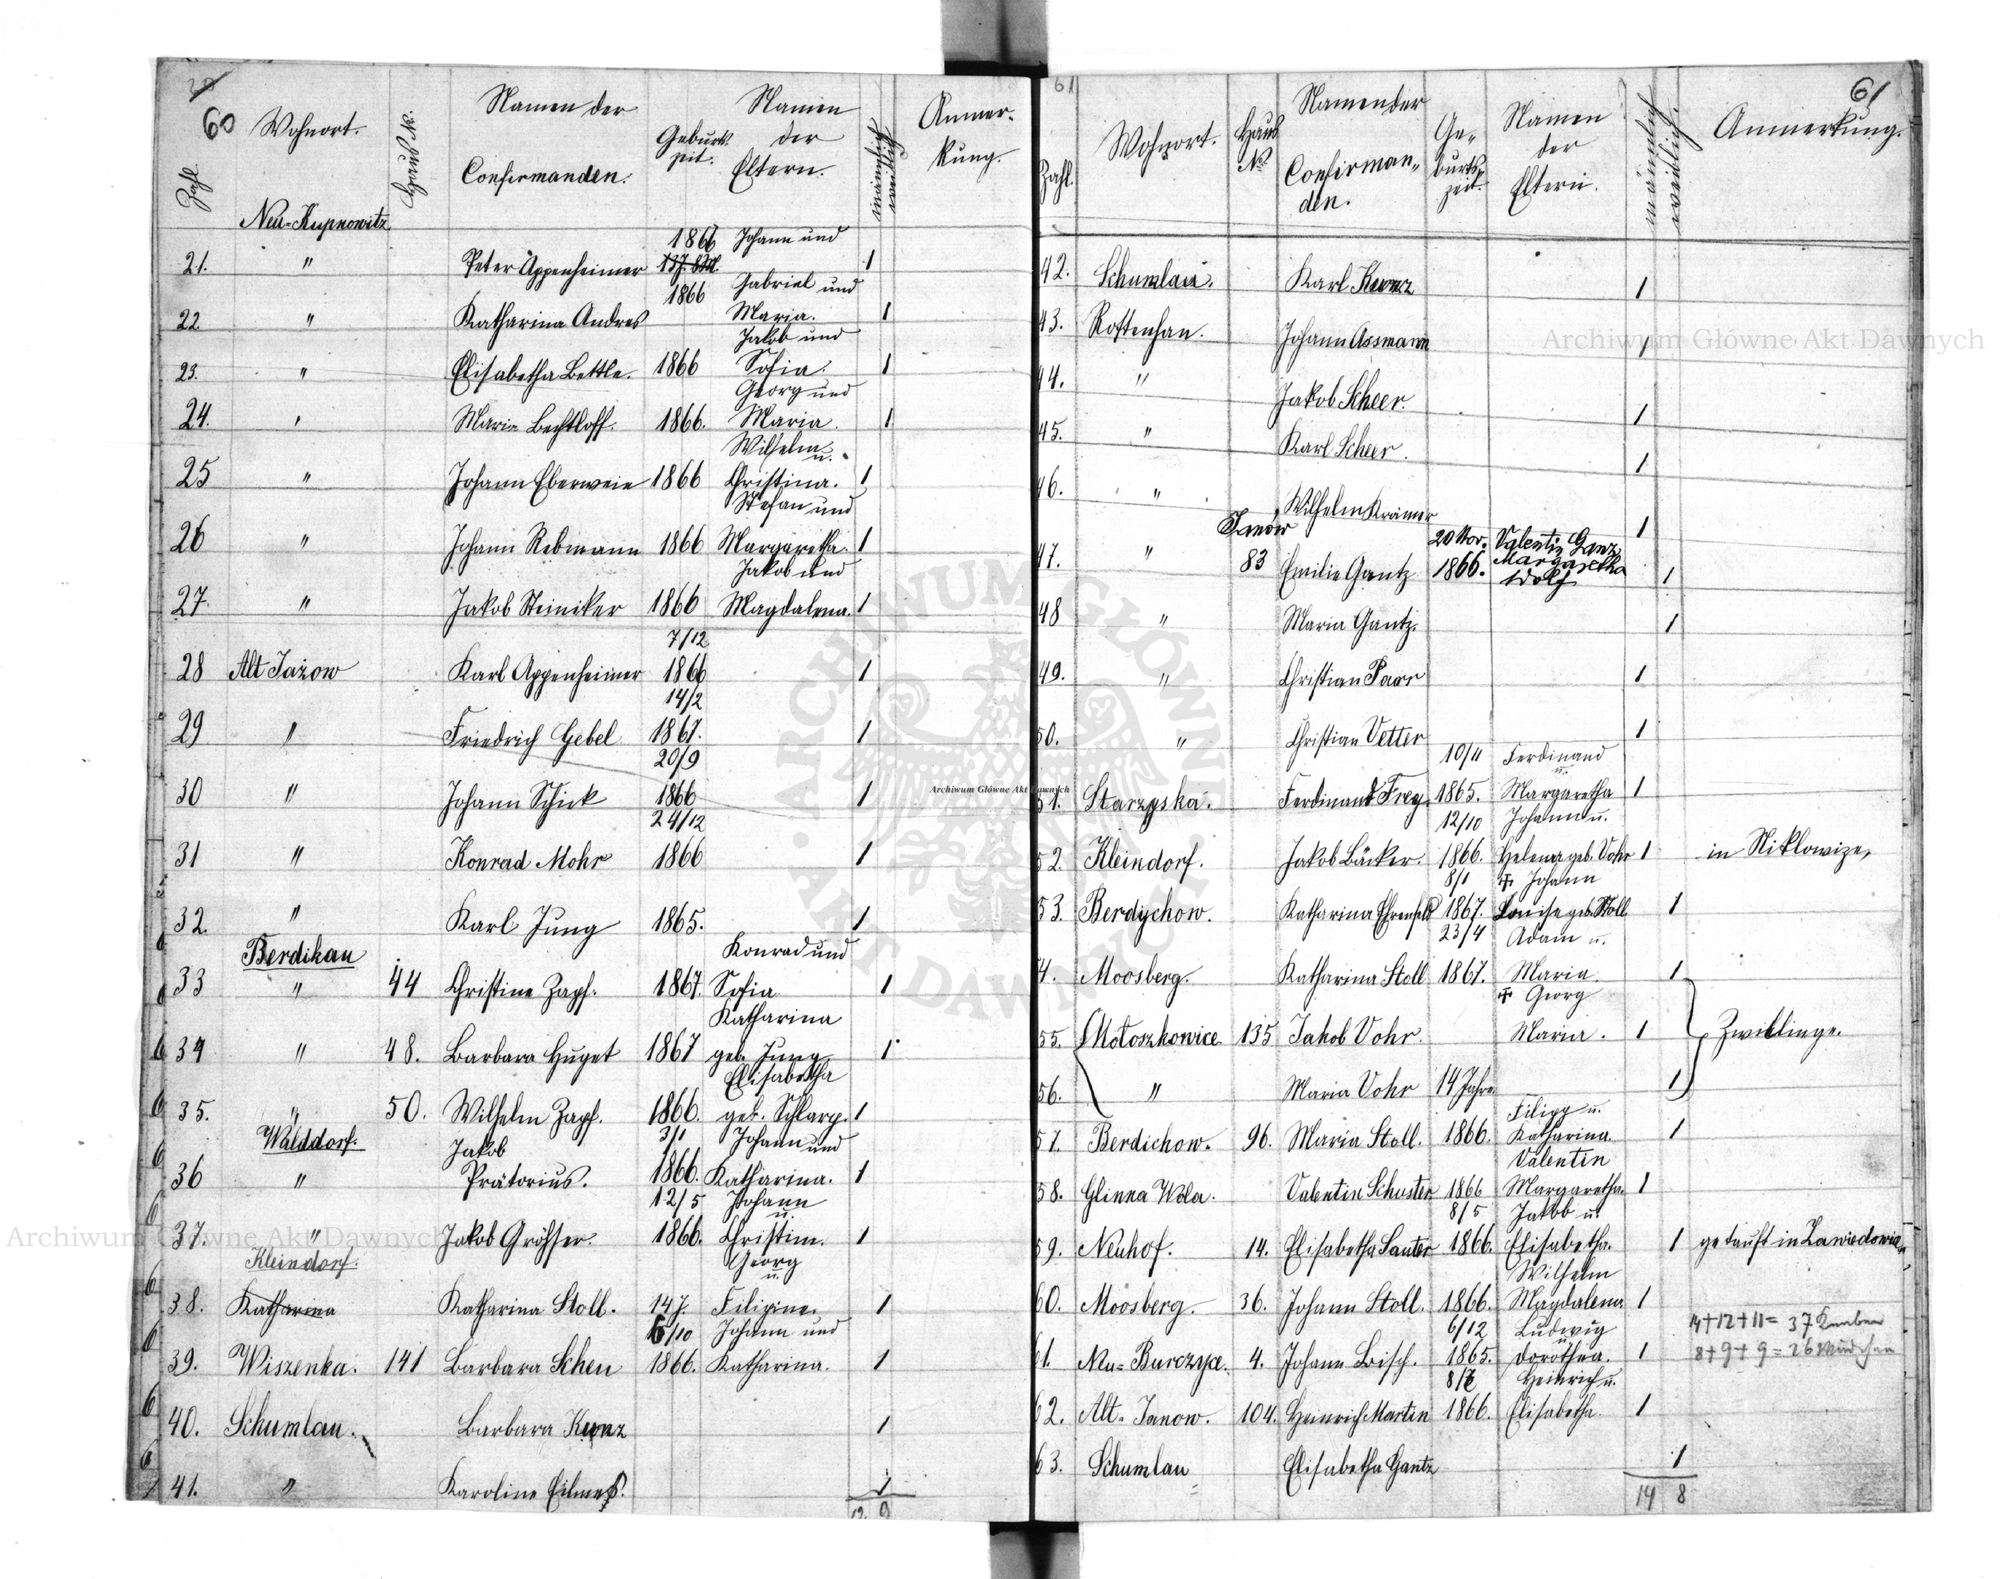 60
Zahl Wohnort. Haus N. Namen der Confirmanden. Geburts zeit. Namen der Eltern. männlich weiblich Anmerkung.
Neu-Kupnowitz
1866 Johann und
21. " Peter Appenheimer 1
1866 Gabriel und
22 " Katharina Andres Maria. 1
Jakob und
23. " Elisabetha Bettle. 1866 Sofia. 1
Georg und
24. " Maria Bechtloff. 1866. Maria. 1
Wilhelm u.
25 " Johann Eberwein 1866 Christina. 1
Stefan und
26 " Johann Rebmann 1866 Margaretha. 1
Jakob und
27. " Jakob Steiniker 1866 Magdalena. 1
7/12
28 Alt Jażow Karl Appenheimer 1866 1
14/2
29 " Friedrich Gebel 1867. 1
20/9
30 " Johann Schick 1866 1
24/12
31 " Konrad Mohr 1866 1
32. " Karl Jung 1865. 1
Berdikau Konrad und
33 " 44 Christine Zapf. 1867. Sofia 1
Katharina
34 " 48. Barbara Huget 1867 geb. Jung. 1
Elisabetha
35. " 50. Wilhelm Zapf. 1866. geb. Schlarp. 1
Walddorf. Jakob 3/1 Johann und
36 " Prätorius. 1866. Katharina. 1
12/5 Johann u.
37. " Jakob Gröhser. 1866. Christin. 1
Kleindorf. Georg u.
38. Katharina Katharina Stoll. 147. Filipine. 1
6/10 Johann und
39. Wiszenka. 141 Barbara Schen 1866. Katharina. 1
40. Schumlau. Barbara Kunz 1
41. " Karoline Eilmes. 1
12. 9
61
61
Zahl Wohnort. Haus N° Namen der Confirmanden. Geburts zeit. Namen der Eltern. männlich weiblich. Anmerkung.
42. Schumlau. Karl Kunz 1
43. Rottenhan. Johann Assmann 1
44. " Jakob Scheer. 1
45. " Karl Scheer. 1
46. " Wilhelm Krämer 1
Janow 20 Nov. Valentin Ganz
47. " 83 Emilie Gantz 1866. Margaretha Wolf 1
48 " Maria Gantz. 1
49. " Christian Parr 1
50. " Christian Vetter 1
10/11 Ferdinand u.
51. Starzyska. Ferdinand Frey 1865. Margaretha 1
12/10 Johann u.
52. Kleindorf. Jakob Bäcker. 1866. Helena geb. Vohr 1 in Niklowize,
8/1 Johann
53. Berdychow. Katharina Ehrenfeld 1867. Louise geb. Stoll 1
23/4 Adam u.
4. Moosberg. Katharina Stoll 1867. Maria. 1
Georg
55. Mołoszkowice 135 Jakob Vohr. Maria. 1 Zwillinge.
56. " Maria Vohr 14 Jahre 1
Filipp u.
57. Berdichow. 96. Maria Stoll. 1866. Katharina. 1
Valentin
58. Glinna Wola. Valentin Schuster 1866 Margaretha. 1
8/5 Jakob u.
59. Neuhof. 14. Elisabetha Sauter 1866. Elisabetha. 1 getauft in
Wilhelm
60. Moosberg. 36. Johann Stoll. 1866. Magdalena 1
14+12+11= 37 Knaben
6/12 Ludwig u.
61. Neu-Burczyce. 4. Johann Bisch. 1865. Dorothea. 1 8+9+9=26 Mädchen
Heinrich u.
62. Alt-Janow. 104. Heinrich Martin 1866. Elisabetha. 1
63. Schumlau Elisabetha Gantz 1
14 8
Archiwum Główne Akt Dawnych
Archiwum Główne Akt Dawnych
Archiwum Główne Akt Dawnych
ARCHIWUM GŁÓWNE AKT DAWNYCH